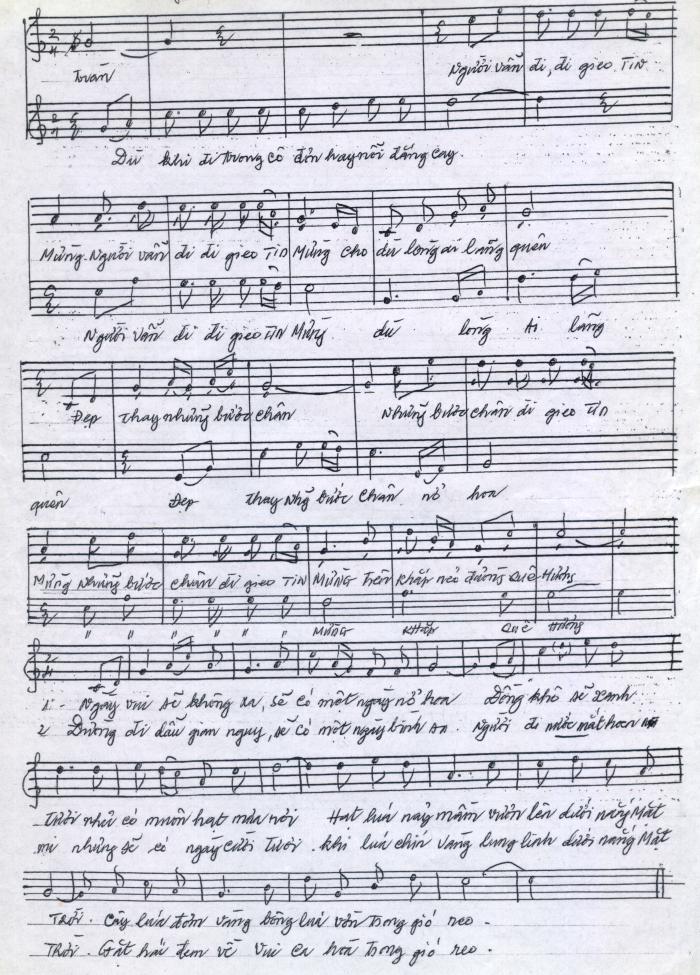 Người vẫn đi, đi gieo Tin
Dù khi đi trong cô đơn hay nỗi đắng cay.
Mừng. Người vẫn đi đi gieo Tin Mừng cho dù lòng ai lãng quên
Người vẫn đi đi gieo Tin Mừng dù lòng Ai lãng
Đẹp thay những bước chân Những bước chân đi gieo Tin
quên Đẹp thay Nhg bước chân nở hoa
Mừng Những bước chân đi gieo Tin Mừng trên khắp nẻo đường Quê Hương
" " " " " Mừng Khắp Quê Hương
1.- Ngày vui sẽ không xa, sẽ có một ngày nở hoa Đồng khô sẽ xanh
2 Đường đi dẫu gian nguy, sẽ có một ngày bình An. Người đi nước mắt hoen
Trời như có muôn hạt mưa rơi Hạt lúa nảy mầm vươn lên dưới nắng Mặt
mi nhưng sẽ có ngày cười Tươi. Khi lúa chín vàng lung linh dưới nắng Mặt
Trời. Cây lúa đơm vàng bông lúa vờn trong gió reo.
Trời. Gặt hái đem về vui ca hòa trong gió reo.